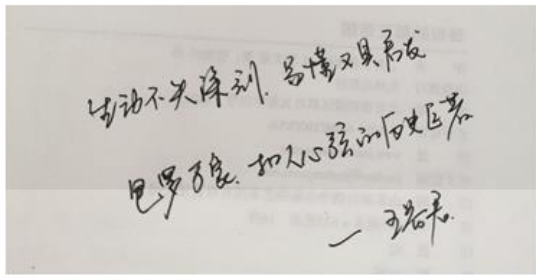 生动不失深刻.易懂又具启发
包罗万象.扣人心弦的历史巨著
一 王